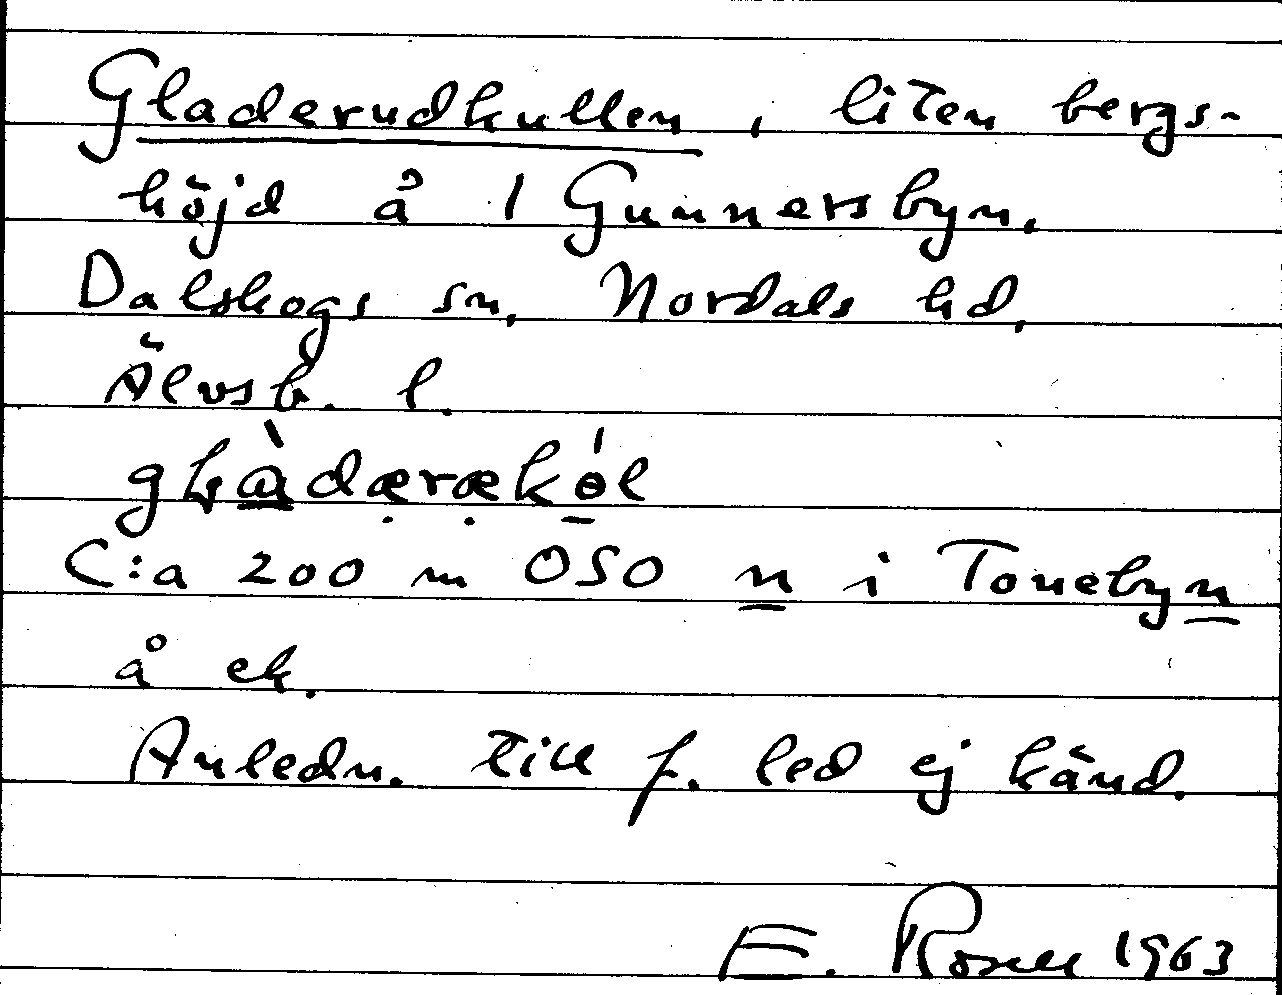 Gladerudkullen, liten bergs-
höjd å 1 Gunnersbyn,
Dalskogs sn, Nordals hd,
Älvsb. l.
C:a 200 m OSO n i Tonebyn
å ek.
Anledn. till f. led ej känd.
E. Rosell 1963